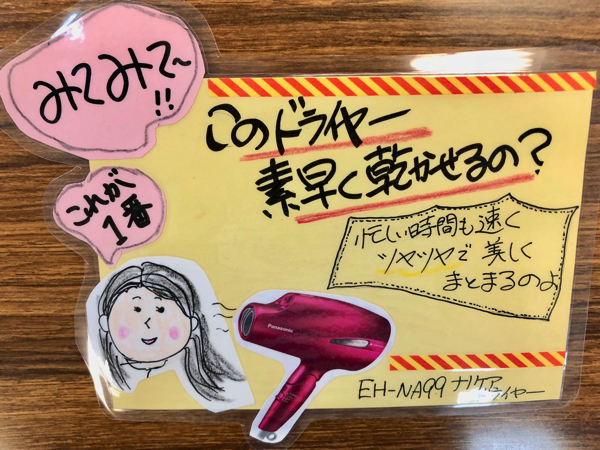 みてみて〜!!
このドライヤー
素早く乾かせるの?
これが
1番
忙しい時間も速く
ツヤツヤで美しく
まとまるのよ
Panasonic
EH-NA99 ナノケア
ドライヤー